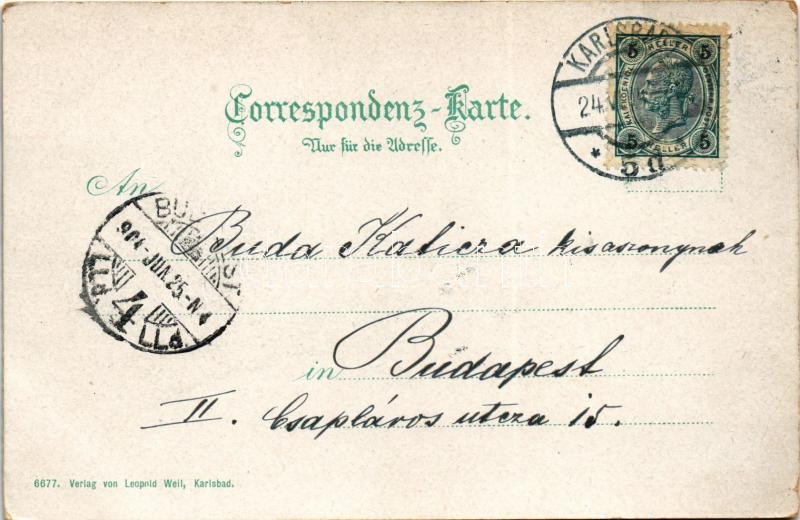 KARLSBAD
24.
5 d
5 HELLER 5
5 HELLER 5
Correspondenz-Karte.
Nur für die Adresse.
An
BUDAPEST
904 JUN. 25. N 4
4
Buda Katicza kisasszonynak
in Budapest
II. Csapláros utcza 15.
6677. Verlag von Leopold Weil, Karlsbad.